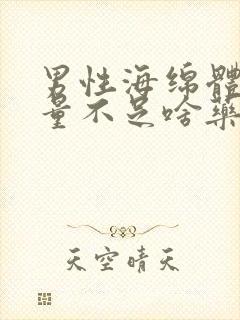 男性海绵體
量不足啥藥
天空晴天